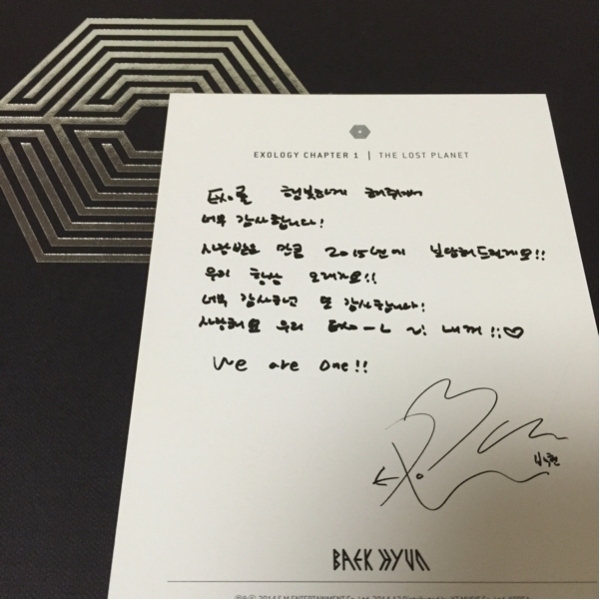 EXOLOGY CHAPTER 1 | THE LOST PLANET
EXO를 행복하게 해줘서
너무 감사합니다!
사랑받은 만큼 2015년에 보답해드릴게요!!
우리 항상 오래가요!!
너무 감사하면 또 감사합니다!
사랑해요 우리 EXO-L 내꺼!!♡
We are one!!
백현
BAEK HYUN